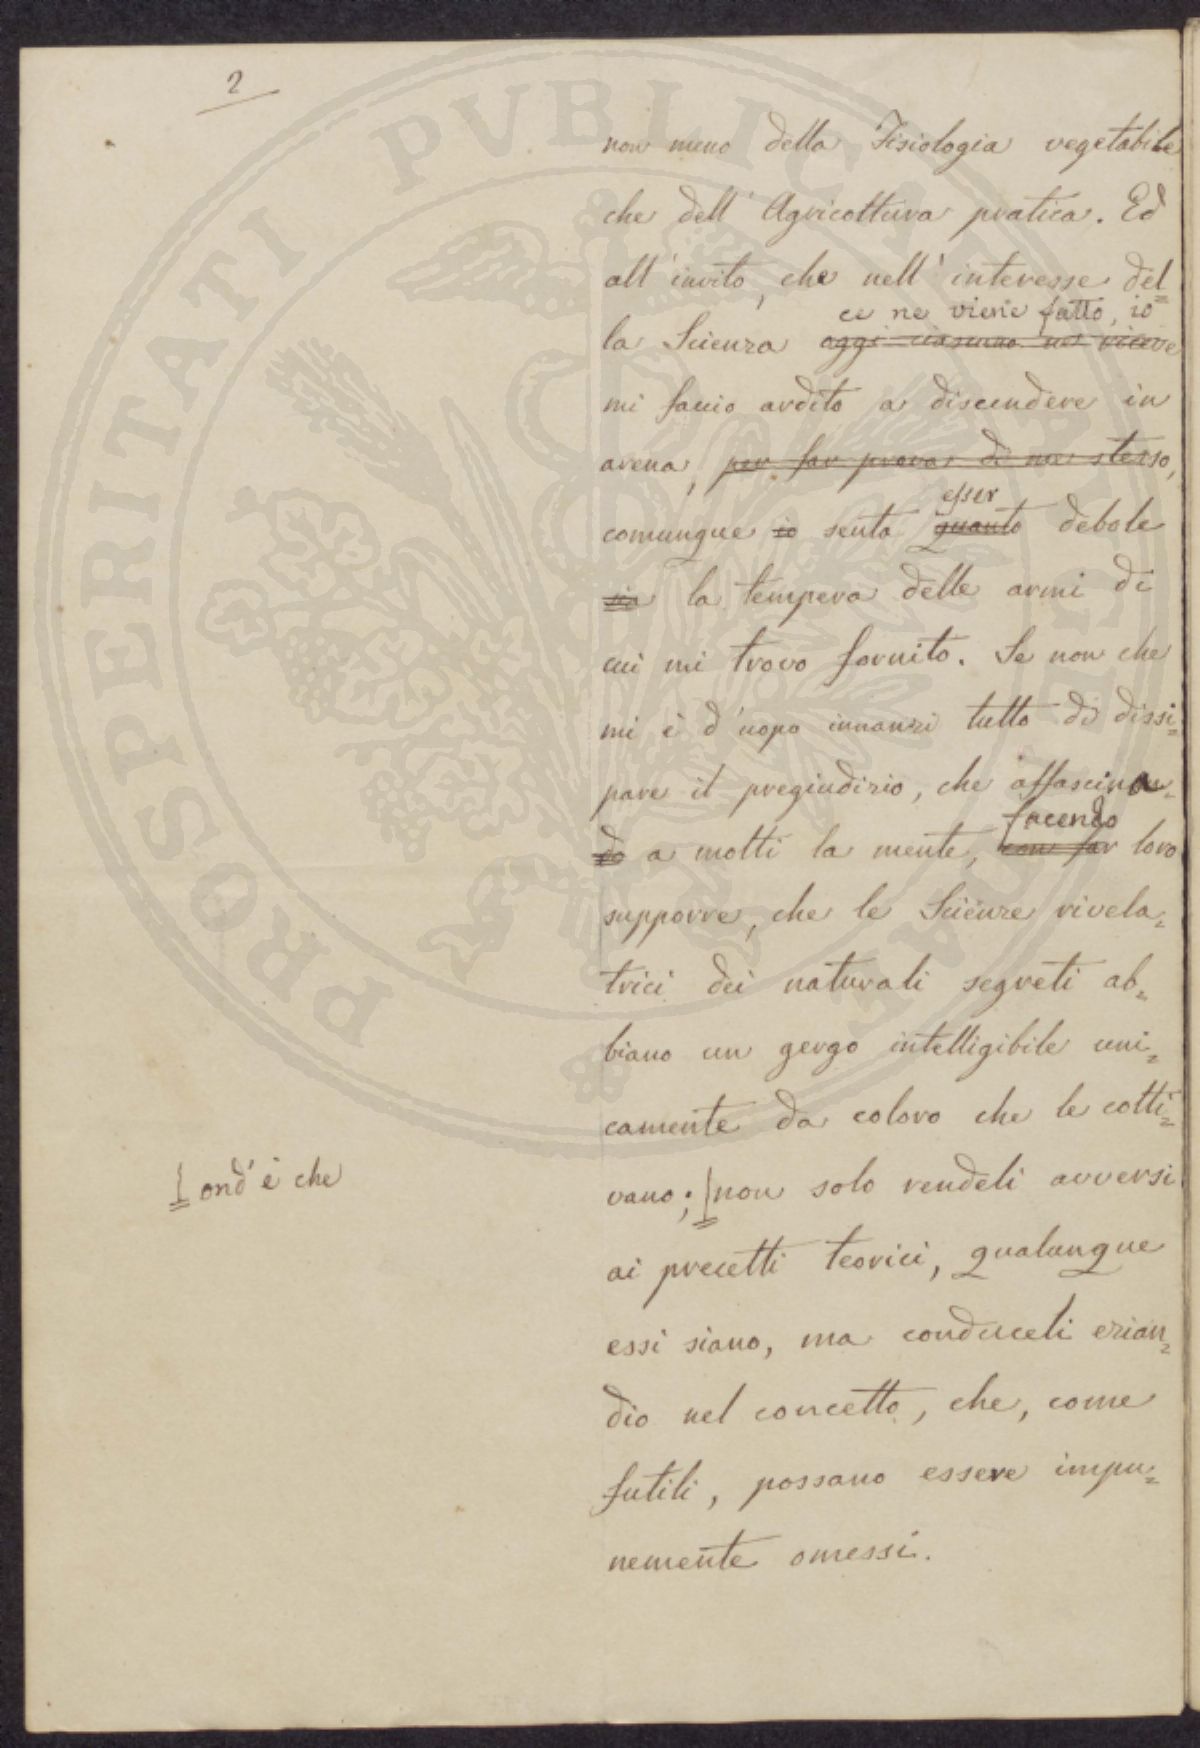 2
non meno della Fisiologia vegetabile
che dell'Agricoltura pratica. Ed
all'invito, che nell'interesse del=
ce ne viene fatto, io
la Scienza oggi ciascuno ne riceve
mi faccio ardito a discendere in
arena, per far prova di me stesso,
esser
comunque io senta quanto debole
sia la tempera delle armi di
cui mi trovo fornito. Se non che
mi è d'uopo innanzi tutto di dissi=
pare il pregiudizio, che affascina=
facendo
do a molti la mente, con far loro
supporre, che le Scienze rivela=
trici dei naturali segreti ab=
biano un gergo intelligibile uni=
camente da coloro che le colti=
ond'è che
vano; non solo rendeli avversi
ai precetti teorici, qualunque
essi siano, ma conduceli ezian=
dio nel concetto, che, come
futili, possano essere impu=
nemente omessi.
PROSPERITATI PVBLICAE